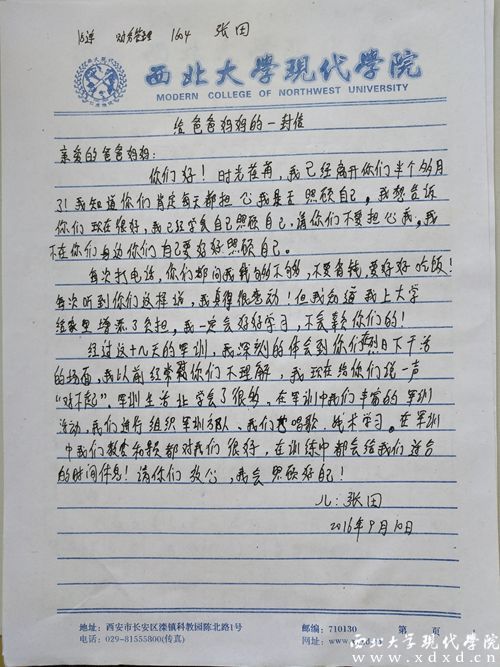 财务管理 1604 张田
西北大学现代学院
MODERN COLLEGE OF NORTHWEST UNIVERSITY
给爸爸妈妈的一封信
亲爱的爸爸妈妈:
你们好!时光荏苒,我已经离开你们半个多月
了!我知道你们肯定每天都担心我是否照顾自己。我想告诉
你们现在很好,我已经学会自己照顾自己,请你们不要担心我。我
不在你们身边你们自己要好好照顾自己。
每次打电话,你们都问我钱的不够,不要省钱,要好好吃饭!
每次听到你们这样说,我真得很感动!但我知道我上大学
给家里增添了负担,我一定会好好学习,不会辜负你们的!
经过这十几天的军训,我深刻的体会到你们烈日下干活
的场面,我以前经常对你们不理解,我现在给你们说一声
“对不起”。军训生活让学会了很多,在军训中我们丰富的军训
活动,我们进行组织军训方队,我们唱歌,战术学习。在军训
中我们教官和都对我们很好,在训练中都会给我们适合
的时间休息!请你们放心,我会照顾好自己!
儿:张田
2016年9月10日
地址:西安市长安区滦镇科教园陈北路1号
邮编:710130
第 页
电话:029-81555800(传真)
西北大学现代学院
www.xdxd.cn